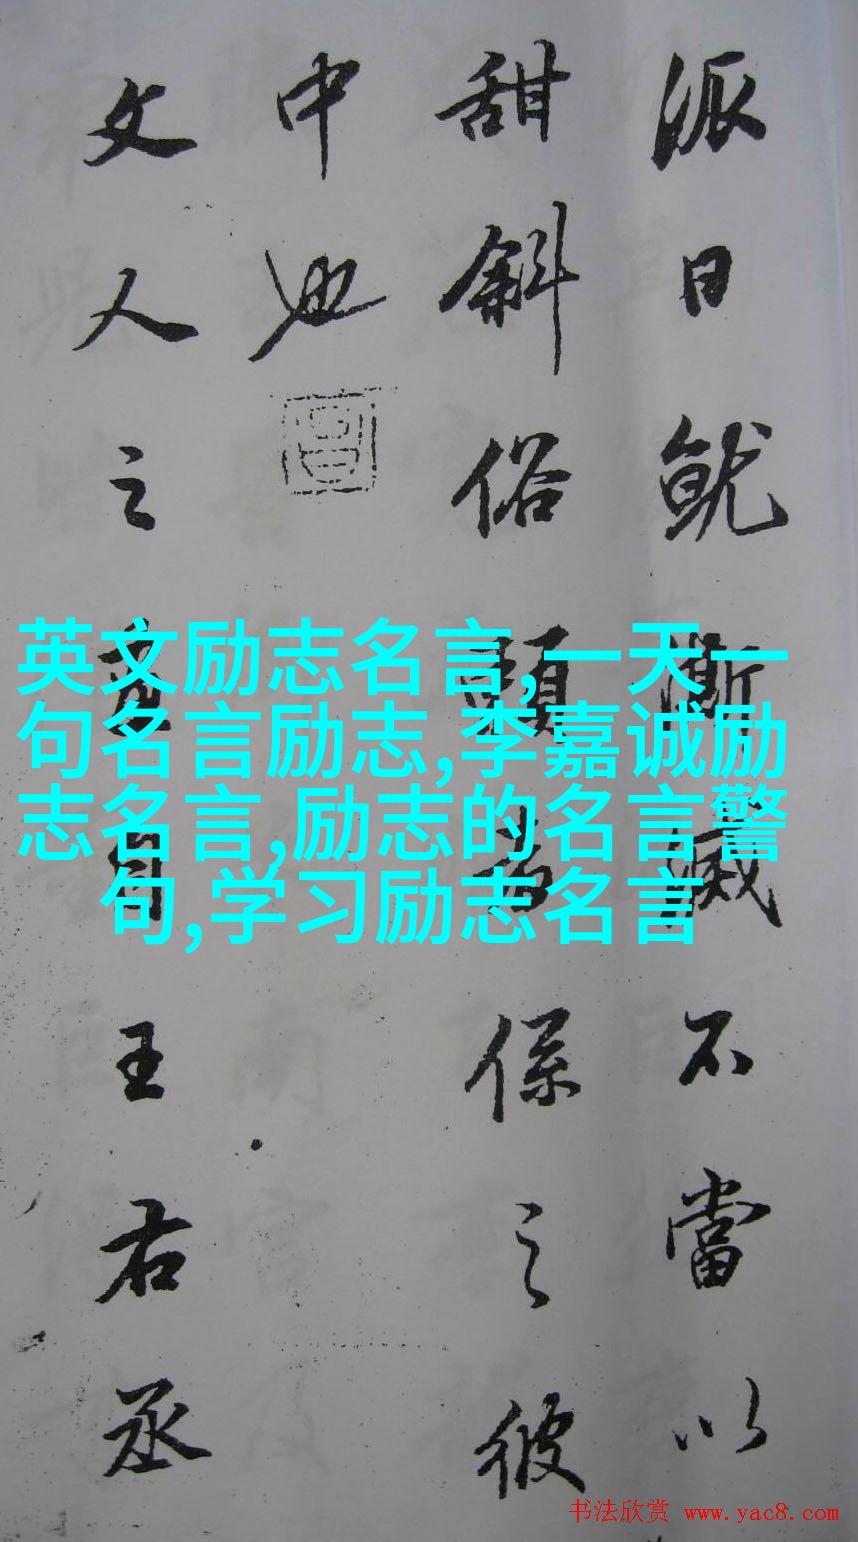 派日就滅不當以
甜斜俗賴者係之彼
中也
文人之畫自王右丞
英文励志名言,一天一
句名言励志,李嘉诚励
志名言,励志的名言警
句,学习励志名言
书法欣赏 www.yac8.com